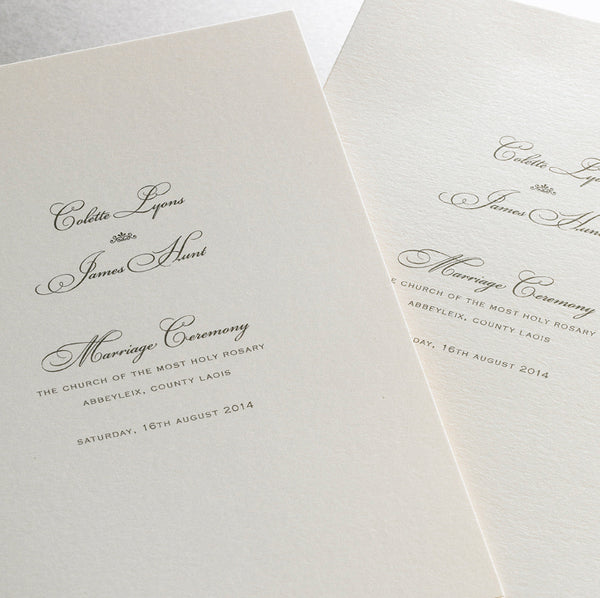 Colette Lyons
James Hunt
Marriage Ceremony
THE CHURCH OF THE MOST HOLY ROSARY
ABBEYLEIX, COUNTY LAOIS
SATURDAY, 16TH AUGUST 2014
Colette Lyons
James Hunt
Marriage Ceremony
THE CHURCH OF THE MOST HOLY ROSARY
ABBEYLEIX, COUNTY LAOIS
16TH AUGUST 2014